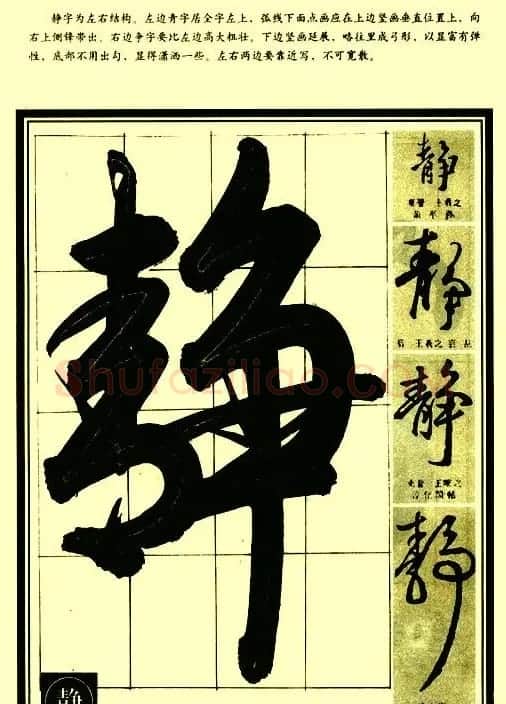 静字为左右结构。左边青字居全字左上，弧线下面点画应在上边竖画垂直位置上，向
右上侧锋带出。右边争字要比左边高大粗壮。下边竖画延展，略往里成弓形，以显富有弹
性，底部不用出勾，显得潇洒一些。左右两边要靠近写，不可宽散。
静
静
东晋 王羲之
静
王羲之
静
东晋 王献之
淳化阁帖
静
Shufaziliao.com
静